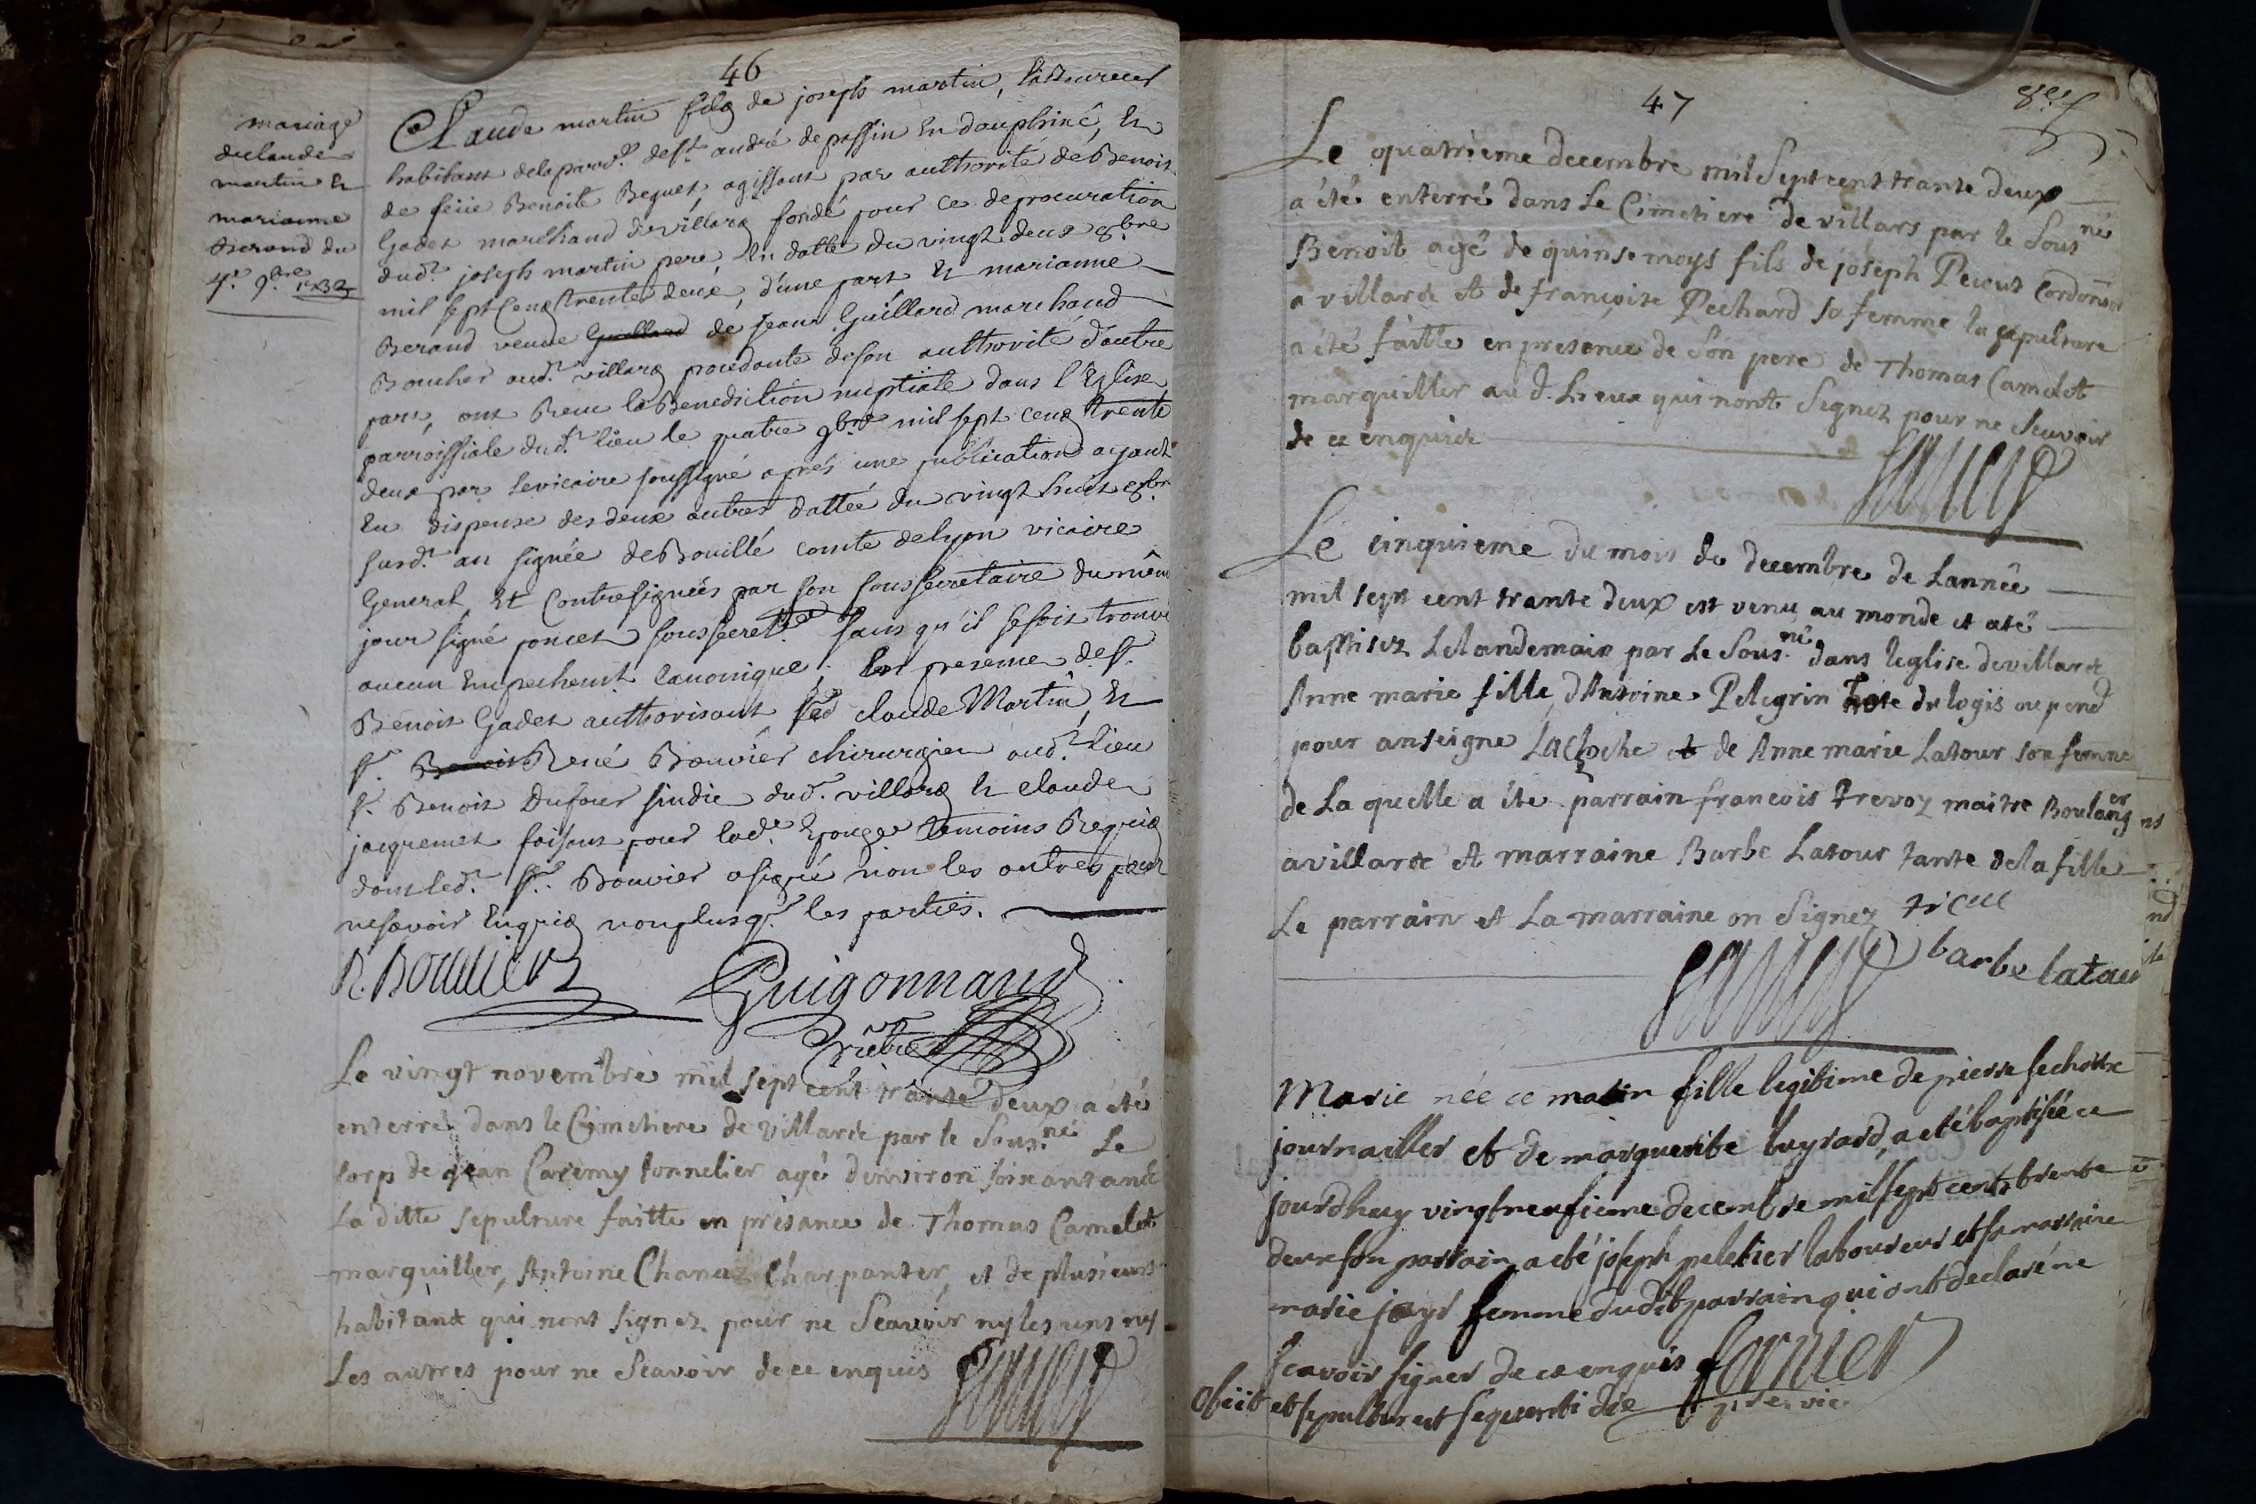 46
mariage
de claude
martin et
marianne
Berand du
4.e 9.bre 1732
Claude martin fils de joseph martin, laboureur
habitant de la parr.sse de s.t andré de passin en dauphiné, et
de feüe Benoite Beguet, agissant par authorité de Benoit
Gadet marchand de villars fondé pour ce de procuration
dud.t joseph martin pere, en datte du vingt deux 8.bre
mil sept cens trente deux, d'une part et marianne
Berand veuve Guillard de jean Guillard marchand
Boucher aud.t villars procedante de son authorité d'autre
part, ont Receu la Benediction nuptiale dans l'Eglise
parroissiale dud.t lieu le quatre 9bre mil sept cens trente
deux par le vicaire soussigné aprés une publication ayant
eu dispense des deux autres dattée du vingt huit 8.bre
surd.t an signée de Bouillé comte de lyon vicaire
General, Et Contresignées par son soussecretaire du même
jour signé poncet soussecret.re sans qu'il se soit trouvé
aucun Empechem.t Canonique; En presence de s.r
Benoit Gadet authorisant led claude Martin, Et
s.r Benoit René Bouvier chirurgien aud.t lieu
s.r Benoit Dufour sindic dud.t villars et claude
jacquemet faisant pour lad.e Epouse temoins Requis
dont led.t s.r Bouvier a signé non les autres pour
ne savoir Enquis non plus q.e les parties.
R. Bouvier
Guigonnand
Prêtre
Le vingt novembre mil sept cent trante deux a été
enterré dans le Cimetiere de villards par le Sous.né Le
Corps de jean Caremy tonnelier agé denviron soixant ans
La ditte sepulture faitte en présance de Thomas Camelot
marguiller, Antoine Chanaz Charpanter, et de plusieurs
habitant qui nont signez pour ne Scavoir ny les uns ny
Les autres pour ne Scavoir de ce enquis
47
Le quatrieme decembre mil Sept cent trante deux
a été enterré dans Le Cimetiere de villars par le Sous né
Benoit agé de quinse moys fils de joseph Pecout Cordonier
a villards et de françoise Pechard sa femme la sepulture
a été faitte en presence de Son pere de Thomas Camelot
marguiller au d. Lieux qui nont Signez pour ne scavoir
de ce enquis
Le cinquieme du mois de decembre de Lannée
mil sept cent trante deux est venu au monde et a té
baptisez Lelandemain par Le Sous.né dans leglise de villards
Anne marie fille d'Antoine Pelegrin hote du logis ou pend
pour anseigne La cloche et de Anne marie Latour son femme
de La quelle a éte parrain francois Trevoz maitre Boulanger
a villards et marraine Barbe Latour tante de la fille
Le parrain et La marraine on Signez
barbe latour
Marie née ce matin fille legitime de pierre sechosse
journaillier et de marguerite luysard, a eté baptisée ce
jourdhuy vingtneufieme decembre mil sept cents trente
deux son parrain a eté joseph peletier laboureur et sa marraine
marie jays femme dudit parrain qui ont declaré ne
scavoir signer de ce enquis
fornier
Obiit et sepulta est sequenti die